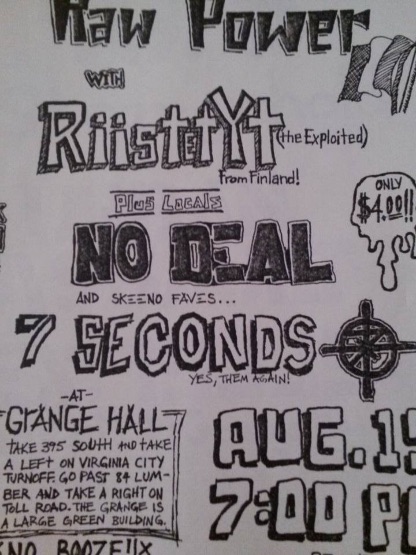 Raw Power
WITH
RiisteTYt (the Exploited)
From Finland!
ONLY
$4.00!!
Plus Locals
NO DEAL
AND SKEENO FAVES...
7 SECONDS
YES, THEM AGAIN!
-AT-
GRANGE HALL
TAKE 395 SOUTH AND TAKE
A LEFT ON VIRGINIA CITY
TURNOFF. GO PAST 84 LUM-
BER AND TAKE A RIGHT ON
TOLL ROAD. THE GRANGE IS
A LARGE GREEN BUILDING.
AUG.
7:00 P
NO BOOZE!!